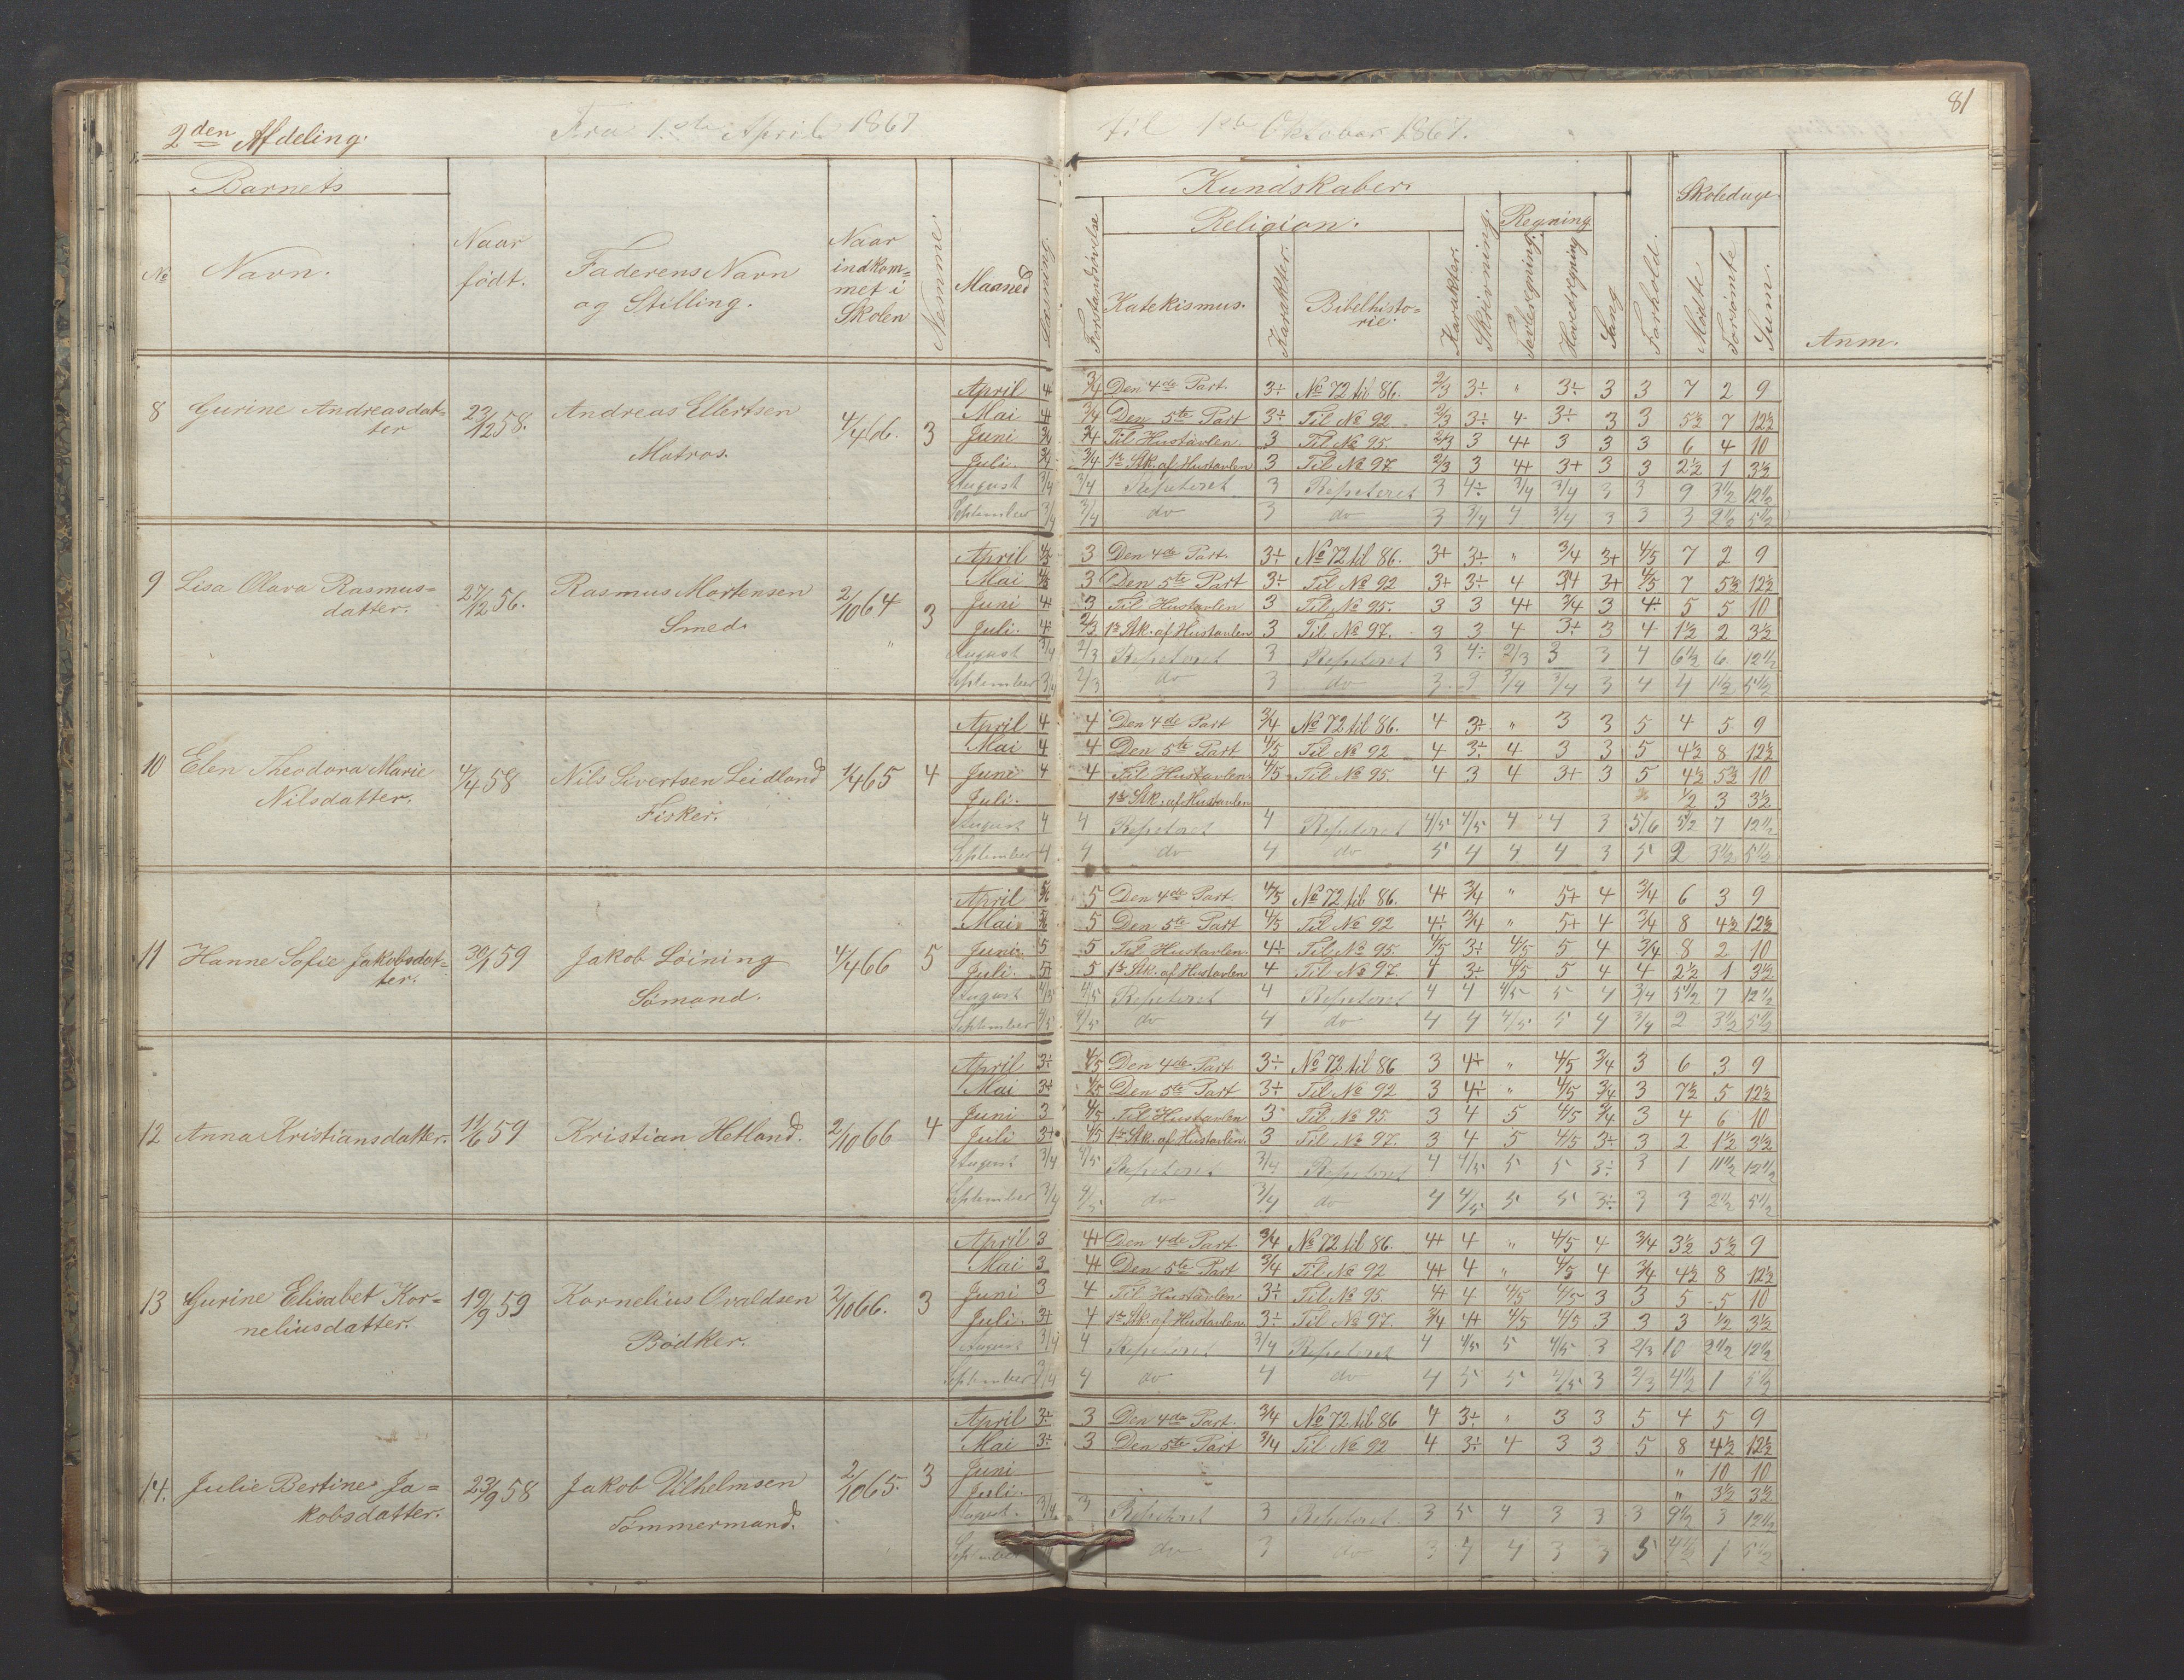 81
2den Afdeling.
Fra 1ste April 1867
til 1ste Oktober 1867.
Barnets
Kundskaber.
Skoledage
Religion.
Regning
No Navn.
Naar født.
Faderens Navn og Stilling.
Naar indkom=met i Skolen
Nemme.
Maaned
Læsning.
Forstandsøvelse
Katekismus.
Karakter.
Bibelhisto=rie.
Karakter.
Skrivning.
Tavleregning.
Hovedregning
Sang
Forhold.
Mødte
Forsømte
Sum.
Anm.
8 Gurine Andreasdat=ter 23/12 58. Andreas Ellertsen Matros. 4/4 66. 3
April 4 3/4 Den 4de Part. 3÷ No 72 til 86. 2/3 3÷ " 3÷ 3 3 7 2 9
Mai 4 3/4 Den 5te Part 3÷ Til No 92 2/3 3÷ 4 3÷ 3 3 5½ 7 12½
Juni 3/4 3/4 Til Hustavlen 3 Til No 95. 2/3 3 4+ 3 3 3 6 4 10
Juli. 3/4 3/4 1ste Stk. af Hustavlen 3 Til No 97 2/3 3 4+ 3+ 3 3 2½ 1 3½
August 3/4 3/4 Repeteret 3 Repeteret 3 4÷ 3/4 3/4 3 3 9 3½ 12½
September 3/4 3/4 do 3 do 3 3/4 4 3/4 3 3 3 2½ 5½
9 Lisa Olava Rasmus=datter. 27/12 56. Rasmus Mortensen Smed. 2/10 64 3
April 4/5 3 Den 4de Part 3÷ No 72 til 86. 3+ 3÷ " 3/4 3+ 4/5 7 2 9
Mai 4/5 3 Den 5te Part 3÷ Til No 92 3+ 3÷ 4 3/4 3+ 4/5 7 5½ 12½
Juni 4 3 Til Hustavlen 3 Til No 95. 3 3 4+ 3/4 3 4÷ 5 5 10
Juli. 4 2/3 1ste Stk. af Hustavlen 3 Til No 97. 3 3 4 3÷ 3 4 1½ 2 3½
August 3/4 2/3 Repeteret 3 Repeteret 3 4÷ 2/3 3 3 4 6½ 6 12½
September 3/4 2/3 do 3 do 3 3 3/4 3/4 3 4 4 1½ 5½
10 Elen Theodora Marie Nilsdatter. 4/4 58 Nils Sivertsen Leidland Fisker. 1/4 65 4
April 4 4 Den 4de Part 3/4 No 72 til 86. 4 3÷ " 3 3 5 4 5 9
Mai 4 4 Den 5te Part 4/5 Til No 92 4 3÷ 4 3 3 5 4½ 8 12½
Juni 4 4 Til Hustavlen 4/5 Til No 95. 4 3 4 3+ 3 5 4½ 5½ 10
Juli. 1ste Stk. af Hustavlen ½ 3 3½
August 4 4 Repeteret 4 Repeteret 4/5 4/5 4 4 3 5/6 5½ 7 12½
September 4 4 do 4 do 5 4 4 4 3 5 2 3½ 5½
11 Hanne Sofie Jakobsdat=ter. 30/1 59 Jakob Løining Sømand. 4/4 66 5
April 5/6 5 Den 4de Part. 4/5 No 72 til 86. 4+ 3/4 " 5+ 4 3/4 6 3 9
Mai 5/6 5 Den 5te Part 4/5 Til No 92 4÷ 3/4 " 5+ 4 3/4 8 4½ 12½
Juni 5 5 Til Hustavlen. 4÷ Til No 95. 4/5 3÷ 4/5 5 4 3/4 8 2 10
Juli. 5+ 5 1ste Stk. af Hustavlen 4 Til No 97. 4 3÷ 4/5 5 4 4 2½ 1 3½
August 4/5 4/5 Repeteret 4 Repeteret 4 4 4/5 5 4 3/4 5½ 7 12½
September 4/5 4/5 do 4 do 4 4 4/5 5 4 3/4 2 3½ 5½
12 Anna Kristiansdatter. 11/6 59 Kristian Hetland. 2/10 66 4
April 3÷ 4/5 Den 4de Part 3÷ No 72 til 86 3 4+ " 4/5 3/4 3 6 3 9
Mai 3+ 4/5 Den 5te Part 3÷ Til No 92 3 4÷ " 4/5 3/4 3 7½ 5 12½
Juni 3 4/5 Til Hustavlen 3 Til No 95. 3 4 5 4/5 3/4 3 4 6 10
Juli 3+ 4/5 1ste Stk. af Hustavlen. 3 Til No 97. 3 4 5 4/5 3÷ 3 2 1½ 3½
August 3/4 4/5 Repeteret 3/4 Repeteret 4 4/5 5 5 3÷ 3 1 11½ 12½
September 3/4 4/5 do 3/4 do 4 4/5 5 5 3÷ 3 3 2½ 5½
13 Gurine Elisabet Kor=neliusdatter. 19/9 59 Kornelius Ovaldsen Bødker. 2/10 66. 3
April 3 4+ Den 4de Part 3/4 No 72 til 86. 4+ 4 " 4/5 4 3/4 3½ 5½ 9
Mai 3 4+ Den 5te Part 3/4 Til No 92 4+ 4 " 4/5 4 3/4 4½ 8 12½
Juni 3 4 Til Hustavlen 3÷ Til No 95. 4+ 4 4/5 4/5 3 3 5 5 10
Juli. 3+ 4 1ste Stk. af Hustavlen. 3÷ Til No 97. 3/4 4+ 4/5 4/5 3 3 3 ½ 3½
August 3/4 4 Repeteret 3/4 Repeteret 4 4/5 5 4/5 3 2/3 10 2½ 12½
September 3/4 4 do 4 do 4 5 5 4/5 3 2/3 4½ 1 5½
14. Julie Bertine Ja=kobsdatter. 23/9 58 Jakob Vilhelmsen Tømmermand. 2/10 65. 3
April 3÷ 3 Den 4de Part. 3/4 No 72 til 86 4 3÷ " 3 3 5 4 5 9
Mai 3÷ 3 Den 5te Part 3/4 Til No 92 4 3÷ 4 3 3 5 8 4½ 12½
Juni " 10 10
Juli. " 3½ 3½
August. 3/4 3 Repeteret 3 Repeteret. 3 5 4 3 3 3 9½ 3 12½
September do 3 do 3 4 4 3 3 5 4½ 1 5½